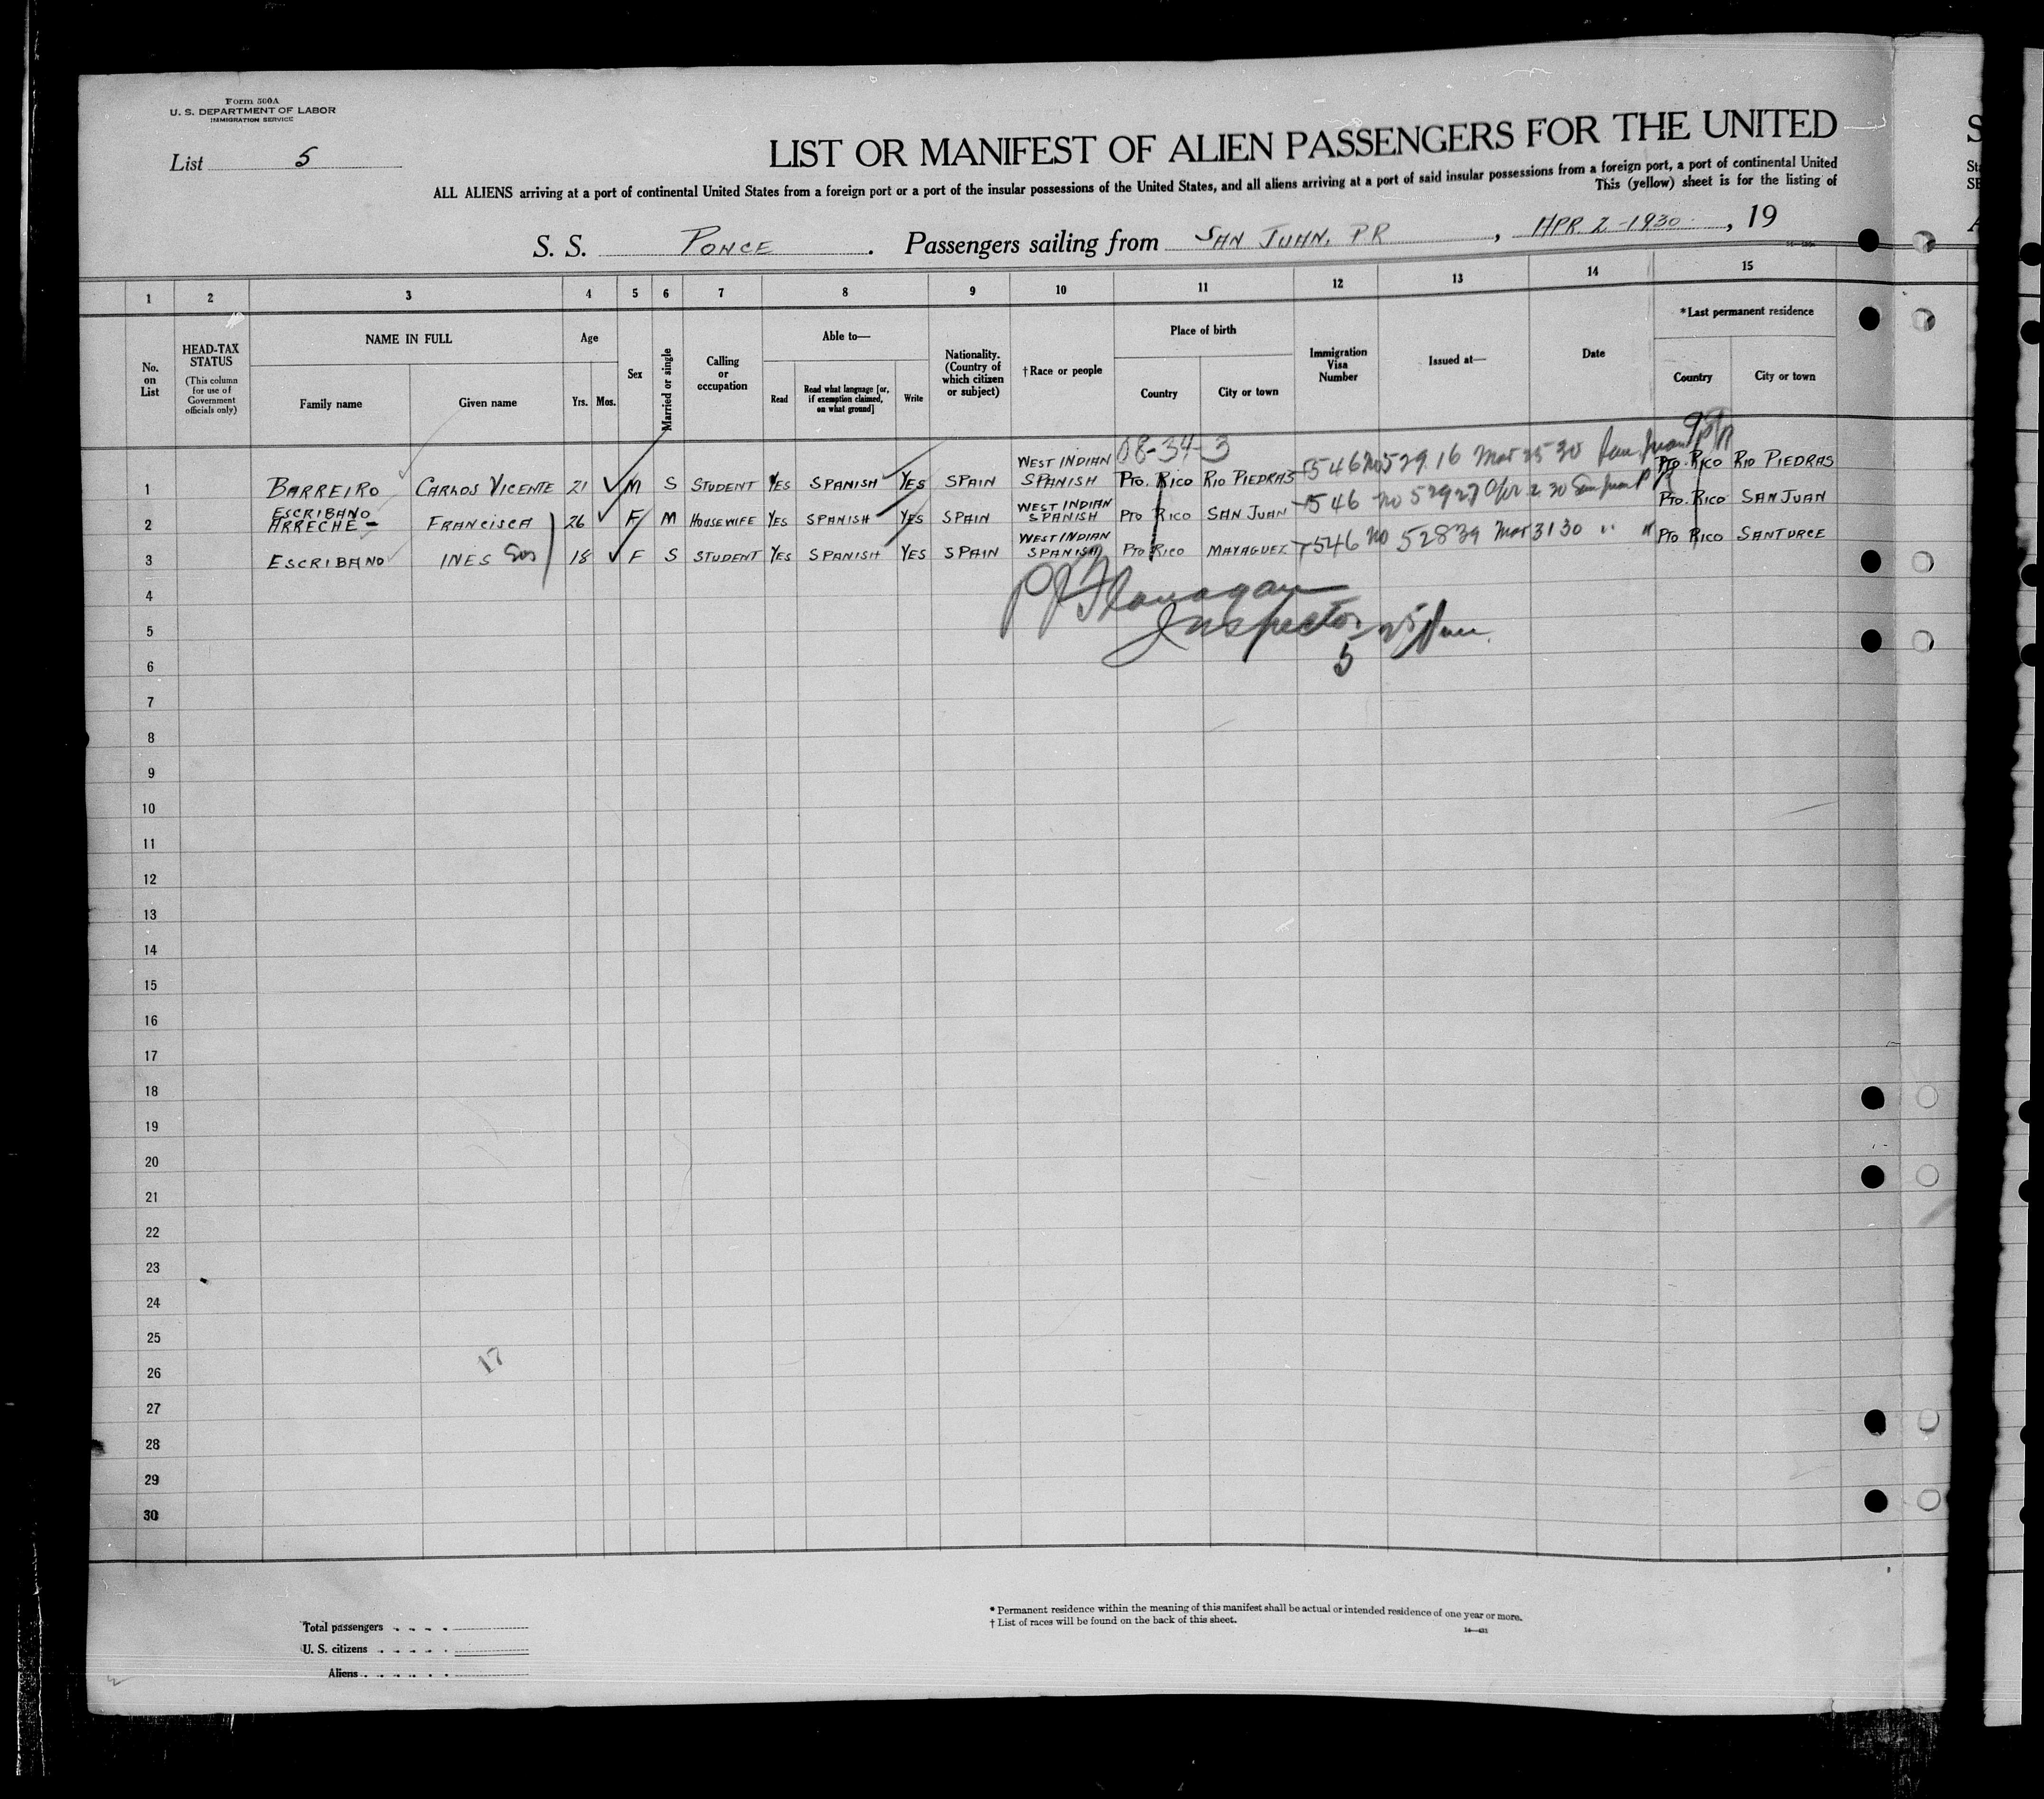 Form 500A
U. S. DEPARTMENT OF LABOR
IMMIGRATION SERVICE
List 5
LIST OR MANIFEST OF ALIEN PASSENGERS FOR THE UNITED
ALL ALIENS arriving at a port of continental United States from a foreign port or a port of the insular possessions of the United States, and all aliens arriving at a port of said insular possessions from a foreign port, a port of continental United
This (yellow) sheet is for the listing of
S. S. PONCE . Passengers sailing from SAN JUAN, PR , APR 2-1930 , 19
1 2 3 4 5 6 7 8 9 10 11 12 13 14 15
No. on List
HEAD-TAX STATUS
(This column for use of Government officials only)
NAME IN FULL
Family name Given name
Age
Yrs. Mos.
Sex
Married or single
Calling or occupation
Able to—
Read
Read what language [or, if exemption claimed, on what ground]
Write
Nationality. (Country of which citizen or subject)
†Race or people
Place of birth
Country City or town
Immigration Visa Number
Issued at—
Date
*Last permanent residence
Country City or town
08-34-3
1 BARREIRO CARLOS VICENTE 21 M S STUDENT YES SPANISH YES SPAIN WEST INDIAN SPANISH PTO. RICO RIO PIEDRAS 546 No 52916 Mar 25 30 San Juan PR PTO. RICO RIO PIEDRAS
2 ESCRIBANO ARRECHE - FRANCISCA 26 F M HOUSEWIFE YES SPANISH YES SPAIN WEST INDIAN SPANISH PTO RICO SAN JUAN 546 No 52927 Apr 2 30 San Juan PR PTO. RICO SAN JUAN
3 ESCRIBANO INES 18 F S STUDENT YES SPANISH YES SPAIN WEST INDIAN SPANISH PTO RICO MAYAGUEZ 546 No 52839 Mar 31 30 " " PTO RICO SANTURCE
4
PJ Flanagan
5
Inspector
5
6
7
8
9
10
11
12
13
14
15
16
17
18
19
20
21
22
23
24
25
26
17
27
28
29
30
* Permanent residence within the meaning of this manifest shall be actual or intended residence of one year or more.
† List of races will be found on the back of this sheet.
Total passengers
U. S. citizens
Aliens